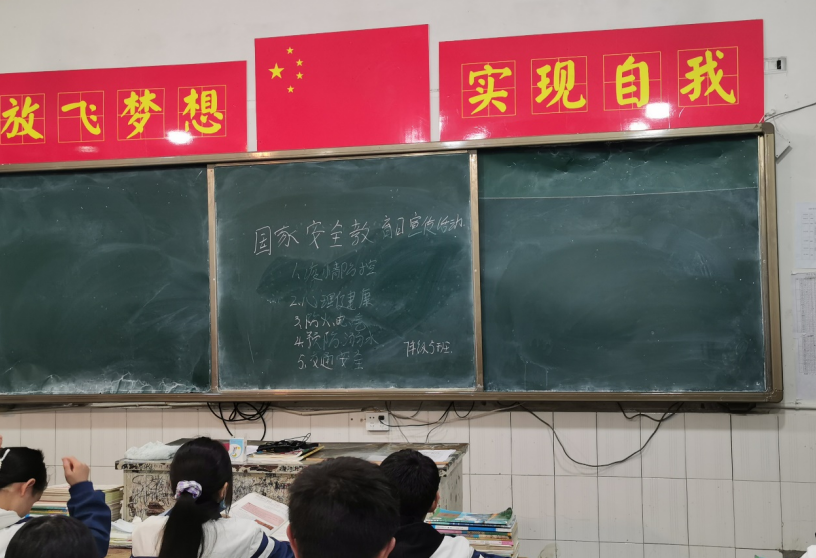 放飞梦想
实现自我
国家安全教育日宣传活动
1.疫情防控
2.心理健康
3.防火电
4.预防溺水
5.交通安全
7年级5班